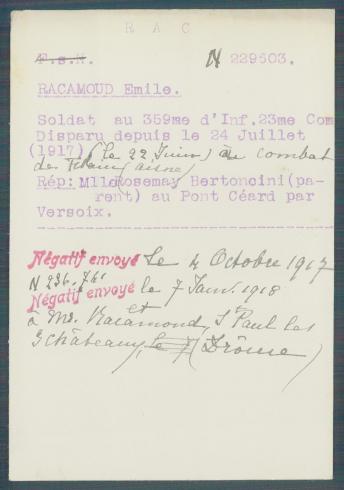 R A C
F.s.M.
N 229503.
RACAMOUD Emile.
Soldat au 359me d'Inf.23me Com
Disparu depuis le 24 Juillet
(1917) (le 22 Juin) au combat
de (Aisne)
Rép: Mlle Rosemay Bertoncini(pa-
rent) au Pont Céard par
Versoix.
Négatif envoyé Le 4 Octobre 1917
N 236.741
Négatif envoyé le 7 Janv. 1918
à Mr. et Racamond, St Paul les
3 châteaux, (Drôme)